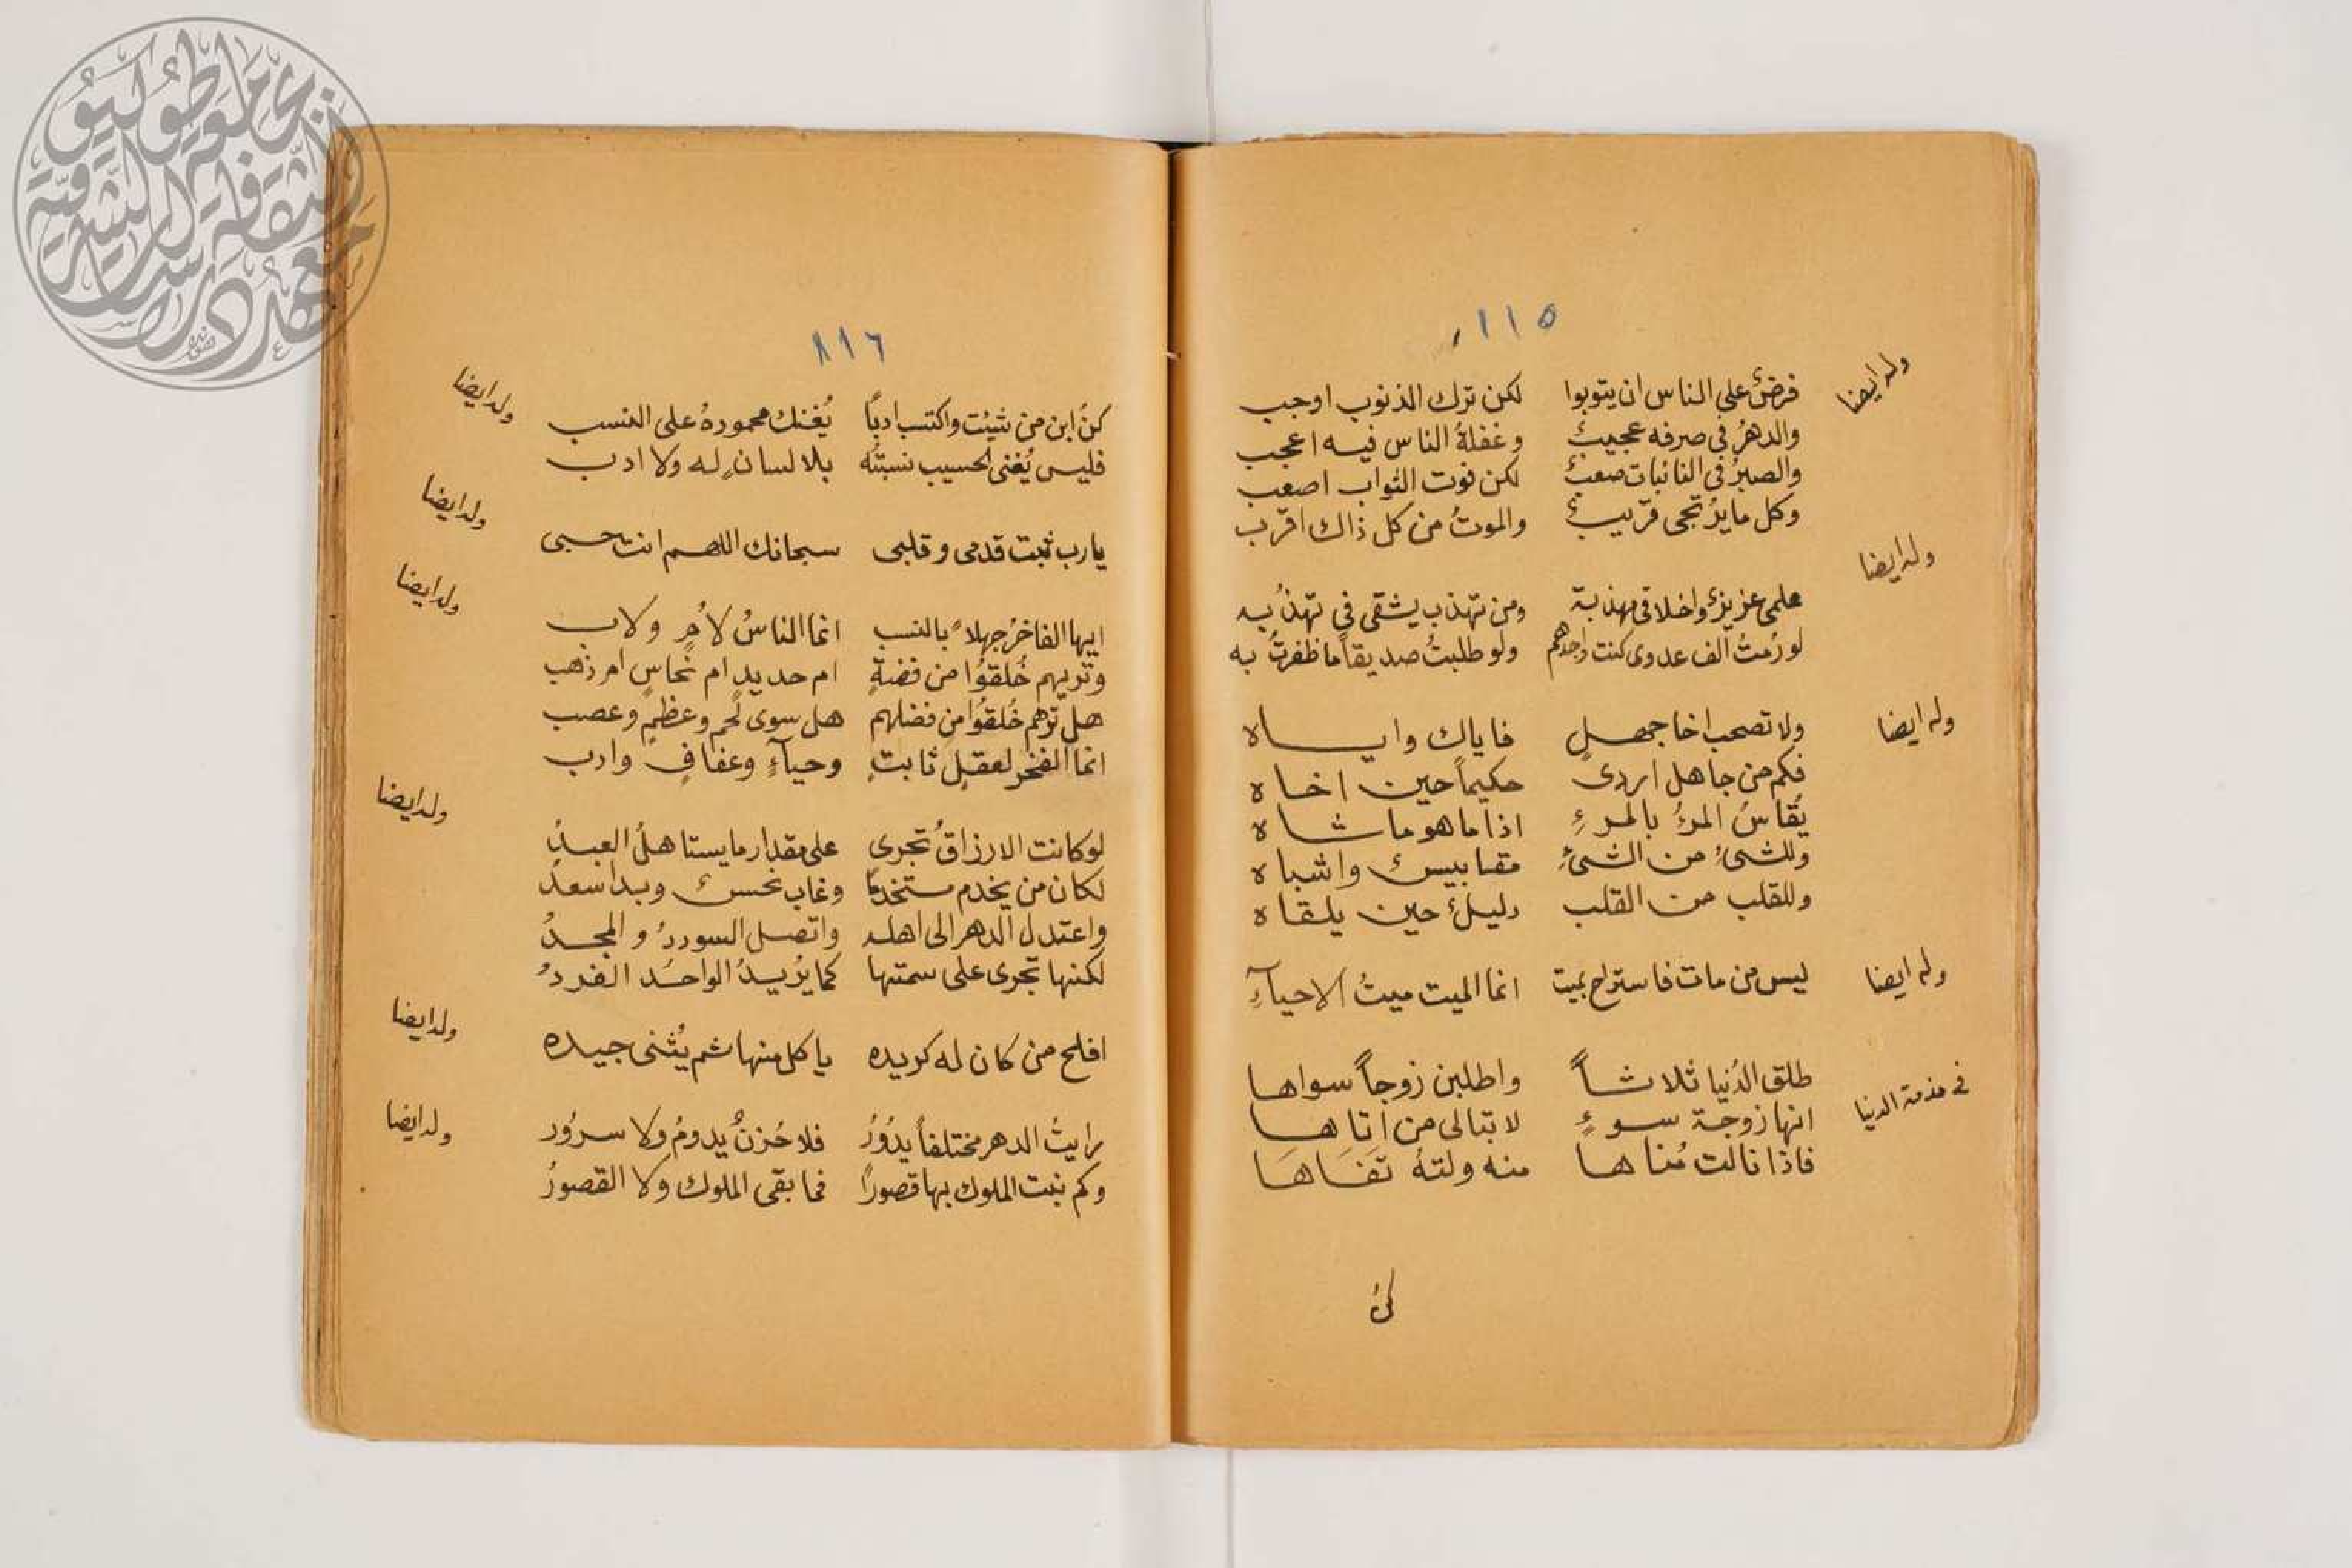 ١١٥
وله ايضا
فرضٌ على الناس ان يتوبوا لكن ترك الذنوب اوجب
والدهرُ في صرفه عجيبٌ وغفلةُ الناس فيه اعجب
والصبرُ في النائبات صعبٌ لكن فوت الثواب اصعب
وكل ما يُرتجى قريبٌ والموتُ من كل ذاك اقرب
وله ايضا
علمي عزيزٌ واخلاقي مهذبة ومن تهذب يشقى في تهذُبه
لو رُمتُ الف عدوى كنت واجدهم ولو طلبتُ صديقاً ما ظفرتُ به
وله ايضا
ولا تصحب اخا جهلٍ فاياك واياه
فكم من جاهل اردى حكيماً حين اخاه
يُقاسُ المرءُ بالمرءِ اذا ما هو ما شاه
وللشىءِ من الشىءِ مقاييسٌ واشباه
وللقلب من القلب دليلٌ حين يلقاه
وله ايضا
ليس من مات فاستراح بميت انما الميت ميتُ الاحيآءِ
في مذمة الدنيا
طلق الدُنيا ثلاثاً واطلبن زوجاً سواها
انها زوجة سوءٍ لا تبالى من اتاها
فاذا نالت مُناها منه ولتهُ تَفَاهَا
كنُ
١١٦
وله ايضا
كنُ ابن من شيٴت واكتسب ادباً يُغنك محمودهُ على النسب
فليس يُغنى الحسيب نسبتُه بلا لسانٍ له ولا ادب
وله ايضا
يا رب ثبت قدمى وقلبى سبحانك اللهم انت حسبى
وله ايضا
ايها الفاخرُ جهلاً بالنسب انما الناسُ لاُمٍ ولاب
وتريهم خُلقوُا من فضةٍ ام حديدٍ ام نحاسٍ ام ذهب
هل ترهم خُلقوُا من فضلهم هل سوى لحمٍ وعظمٍ وعصب
انما الفخر لعقلٍ ثابتٍ وحيآءٍ وعفافٍ وادب
وله ايضا
لو كانت الارزاقُ تجرى على مقدار ما يستاهلُ العبدُ
لكان من يخدم مستخدماً وغاب نحسٌ وبدا سعدُ
واعتدل الدهر الى اهله واتصل السوددُ والمجدُ
لكنها تجرى على سمتها كما يُريدُ الواحدُ الفردُ
وله ايضا
افلح من كان له كريده ياكل منها ثم يُثنى جيده
وله ايضا
رايتُ الدهر مختلفاً يدُوُرُ فلا حُزنٌ يدومُ ولا سرُور
وكم بنت الملوك بها قصوراً فما بقى الملوك ولا القصورُ